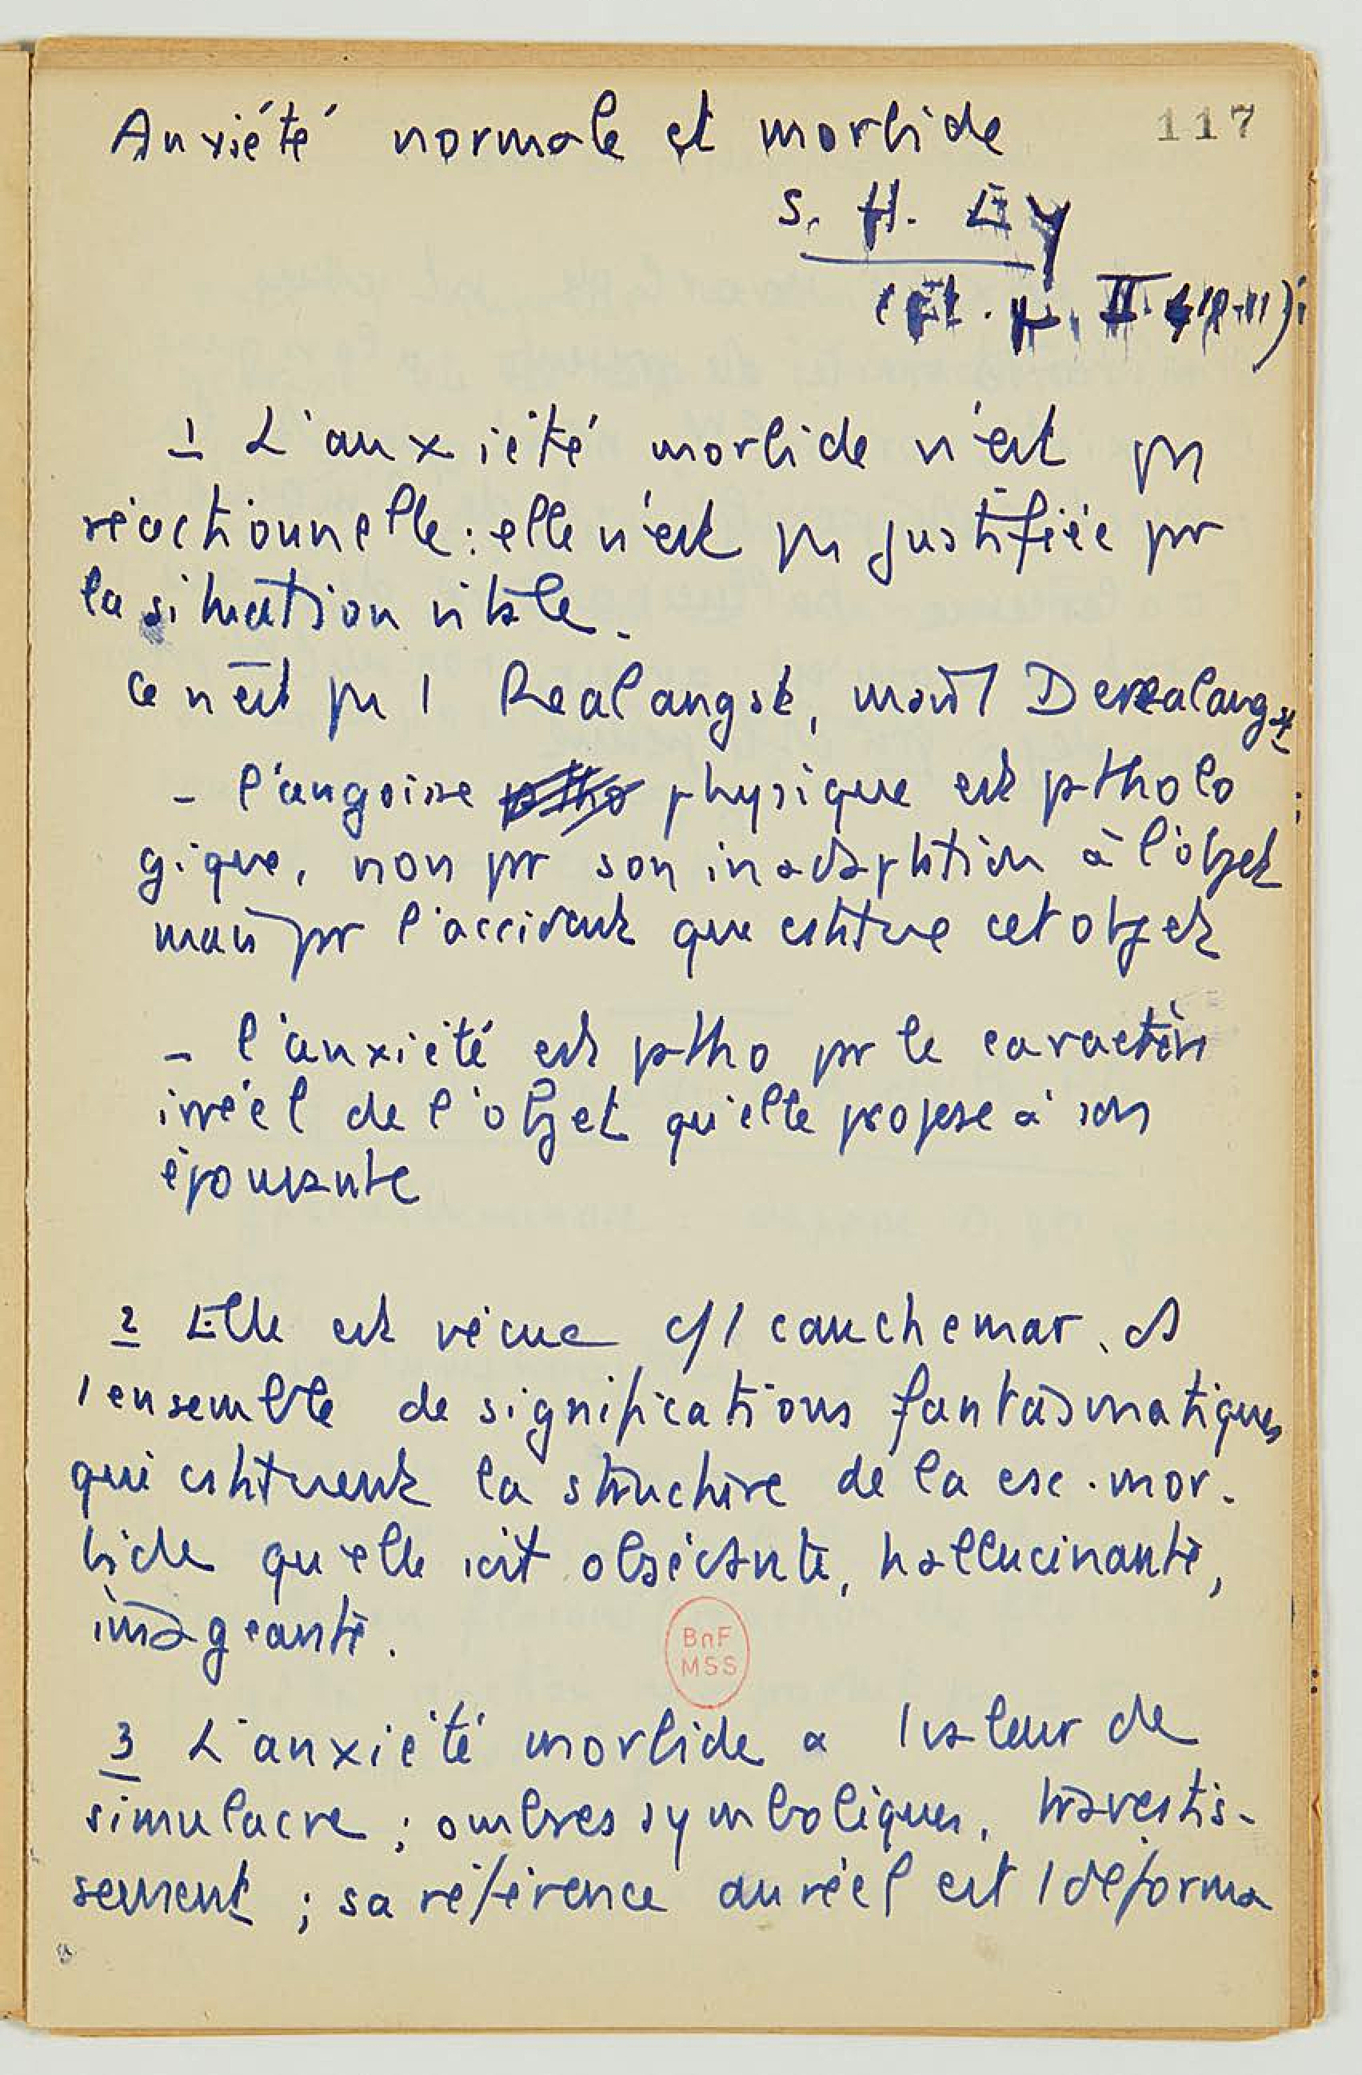 Anxiété normale et morbide
117
s. H. Ey
(Et. ψ. II
1 L'anxiété morbide n'est ps
réactionnelle : elle n'est ps justifiée pr
la situation vitale.
ce n'est ps 1 Realangst, mais 1
- l'angoisse physique est ptholo
gique, non pr son inadaptation à l'objet
mais pr l'accident que cstitue cet objet
- l'anxiété est ptho pr le caractère
irréel de l'objet qu'elle propose à son
épouvante
2 Elle est vécue c/ 1 cauchemar,
1 ensemble de significations fantasmatiques
qui cstituent la structure de la csc. mor-
bide qu'elle soit obsédante, hallucinante,
imageante.
BnF
MSS
3 L'anxiété morbide a 1 valeur de
simulacre ; ombres symboliques, travestis-
sement ; sa référence au réel est 1 déforma